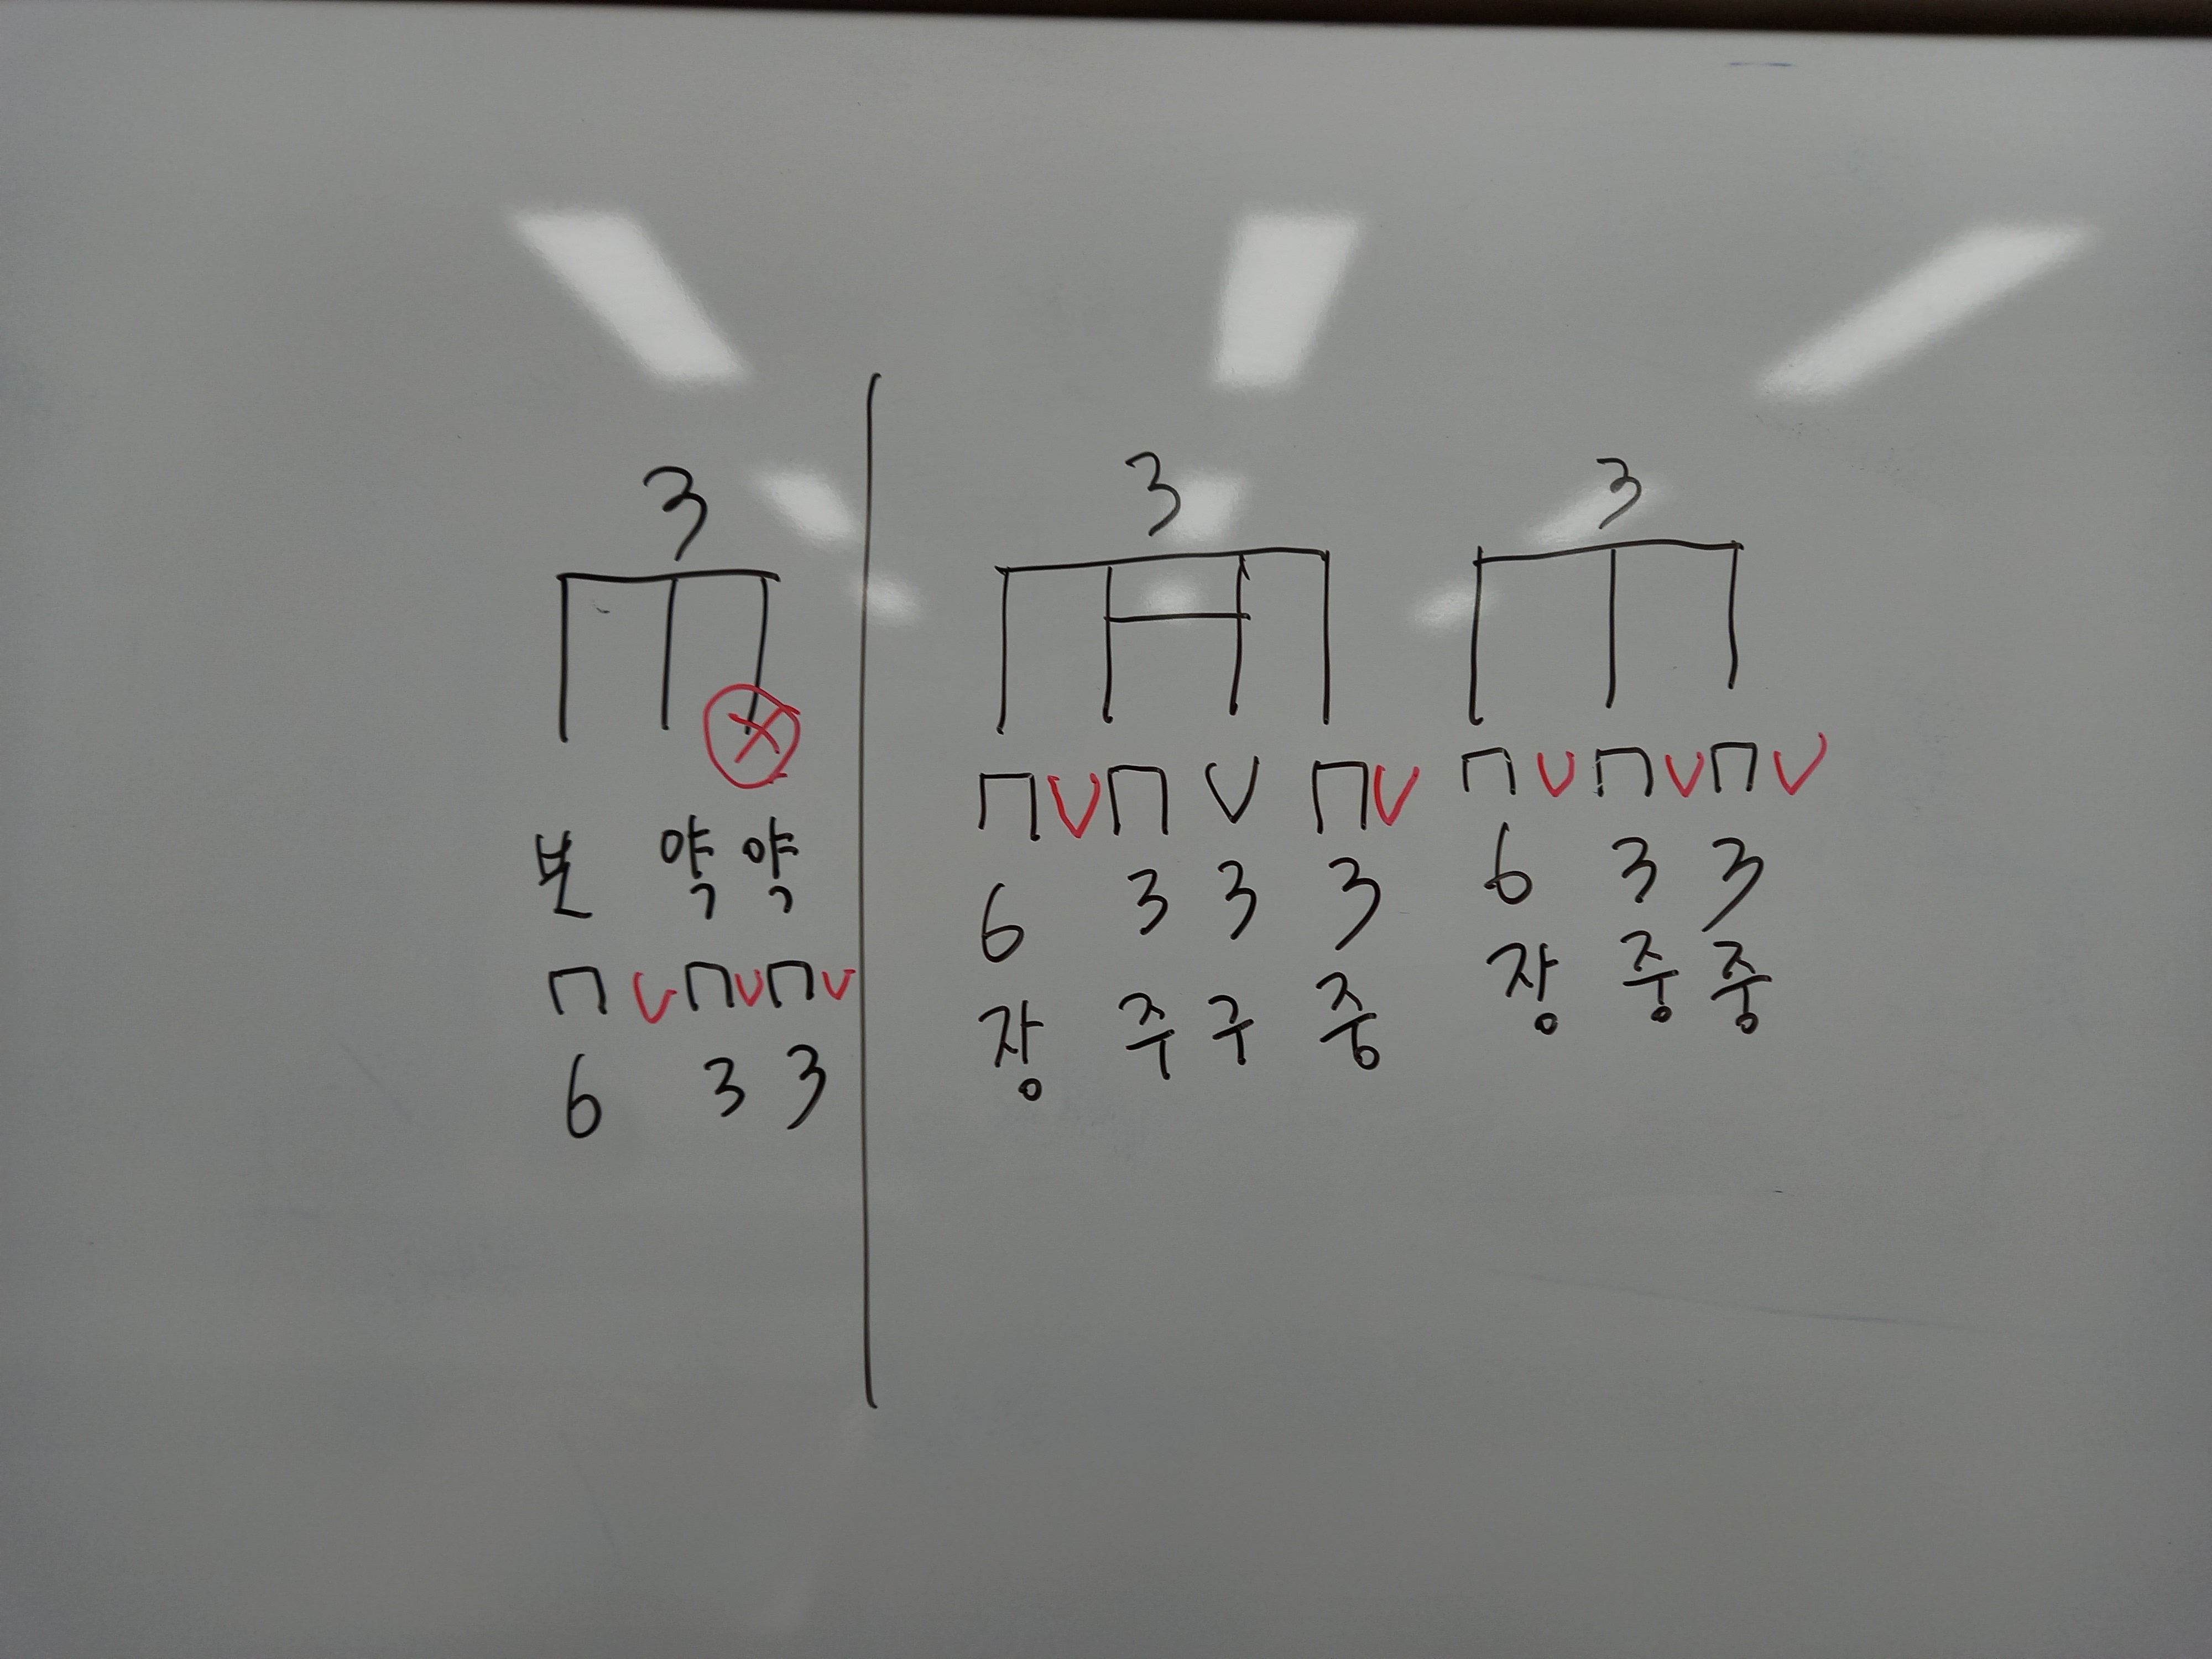 3
본 약 약
6 3 3
3 3
6 3 3 3 6 3 3
장 주 구 중 장 중 중